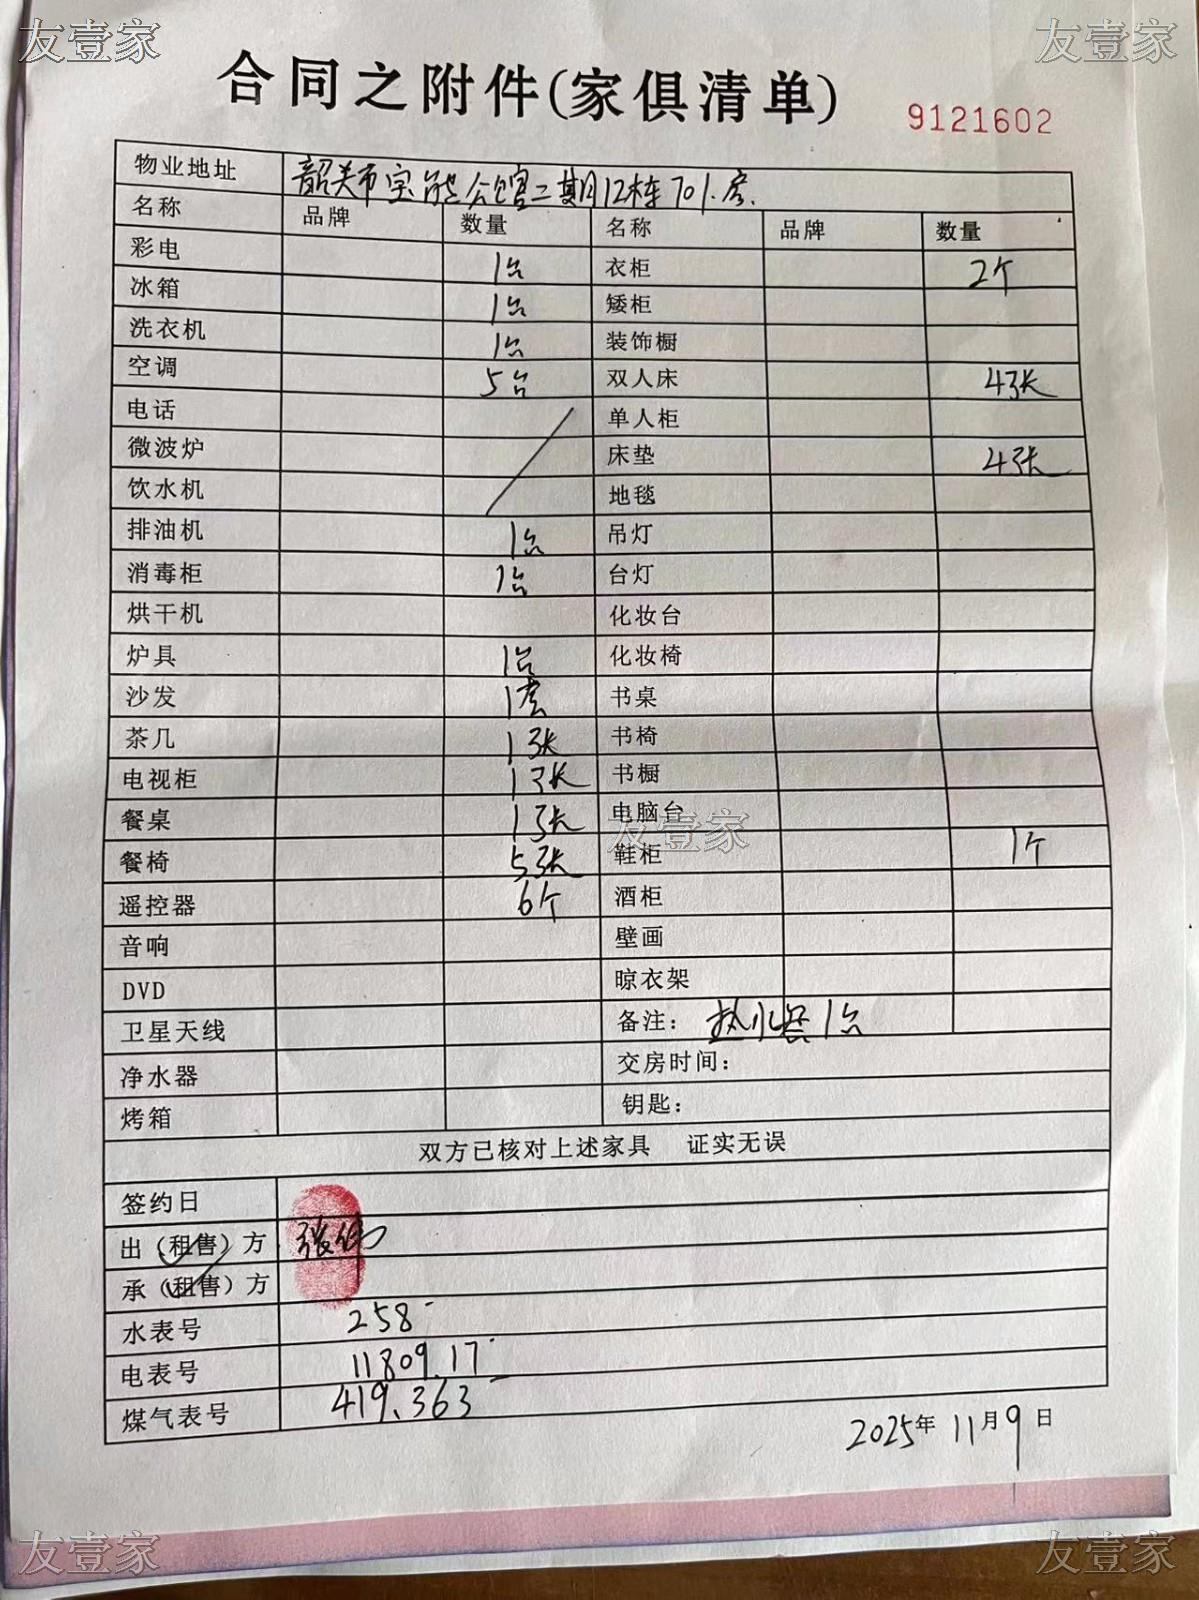 友壹家 友壹家
合同之附件(家俱清单)
9121602
物业地址 韶关市宝能公馆二期12栋701房.
名称 品牌 数量 名称 品牌 数量
彩电 1台 衣柜 2个
冰箱 1台 矮柜
洗衣机 1台 装饰橱
空调 5台 双人床 4张
电话 单人柜
微波炉 床垫 4张
饮水机 地毯
排油机 1台 吊灯
消毒柜 1台 台灯
烘干机 化妆台
炉具 1台 化妆椅
沙发 1套 书桌
茶几 1张 书椅
电视柜 1张 书橱
餐桌 1张 电脑台
友壹家
餐椅 5张 鞋柜 1个
遥控器 6个 酒柜
音响 壁画
DVD 晾衣架
卫星天线 备注: 热水器1台
净水器 交房时间:
烤箱 钥匙:
双方已核对上述家具 证实无误
签约日
出(租售)方 张伟
承(租售)方
水表号 258
电表号 11809.17
煤气表号 419.363
2025年11月9日
友壹家 友壹家